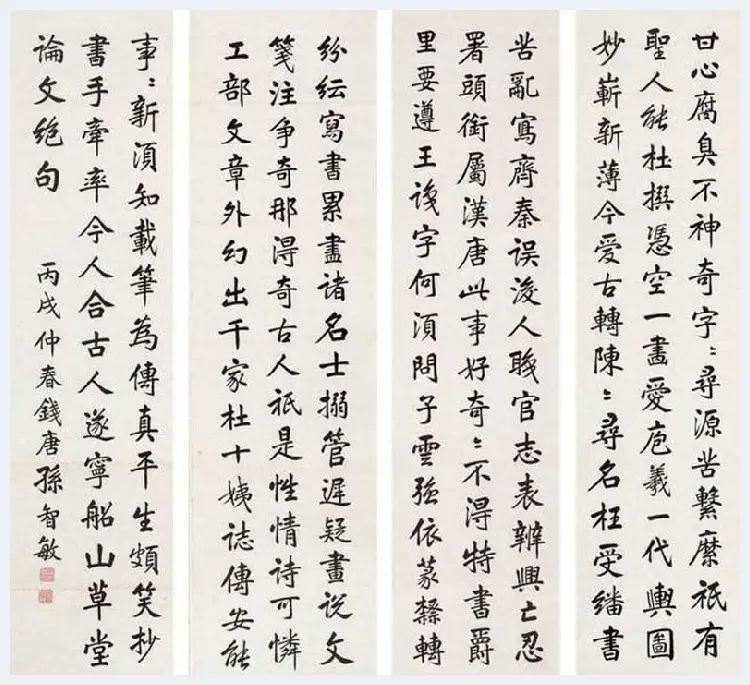 甘心腐臭不神奇字〻尋源苦繫縻祇有
聖人能杜撰憑空一畫愛庖羲一代輿圖
妙嶄新薄今愛古轉陳〻尋名枉受繙書
苦亂寫齊秦误後人職官志表辨興亡忍
署頭銜屬漢唐此事好奇〻不得特書爵
里要遵王识字何須問子雲強依篆隸轉
紛紜寫書累盡諸名士搦管遲疑畫说文
箋注争奇那得奇古人祇是性情诗可憐
工部文章外幻出千家杜十姨誌傳安能
事〻新須知載筆為傳真平生頗笑抄
書手牽率今人合古人遂寧船山草堂
論文绝句
丙戌仲春錢唐孫智敏